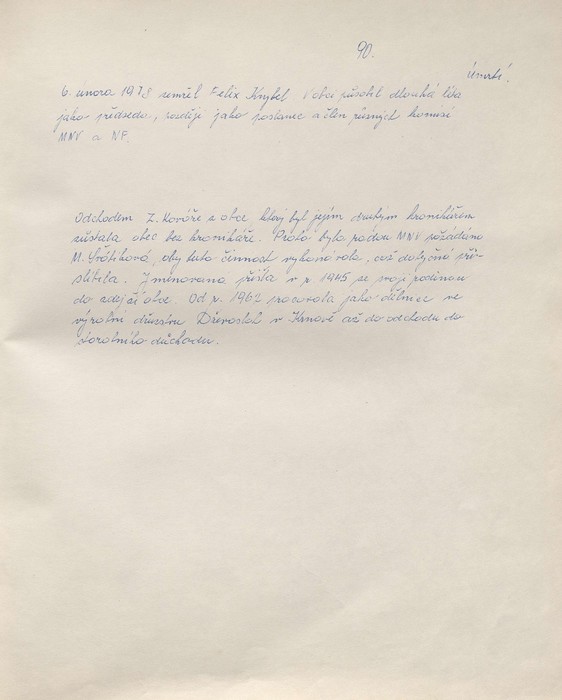 90.
Úmrtí.
6. února 1978 zemřel Felix Knybel V obci působil dlouhá léta
jako předseda, později jako poslanec a člen různých komisí
MNV a NF.
Odchodem Z. Kováře z obce který byl jejím druhým kronikářem
zůstala obec bez kronikáře. Proto byla radou MNV požádána
M. Svátková, aby tuto činnost vykonávala, což dotyčná při-
slíbila. Jmenovaná přišla v r. 1945 se svojí rodinou
do zdejší obce. Od r. 1962 pracovala jako dělnice ve
výrobní družstvu Dřevostal v Krnově až do odchodu do
starobního důchodu.